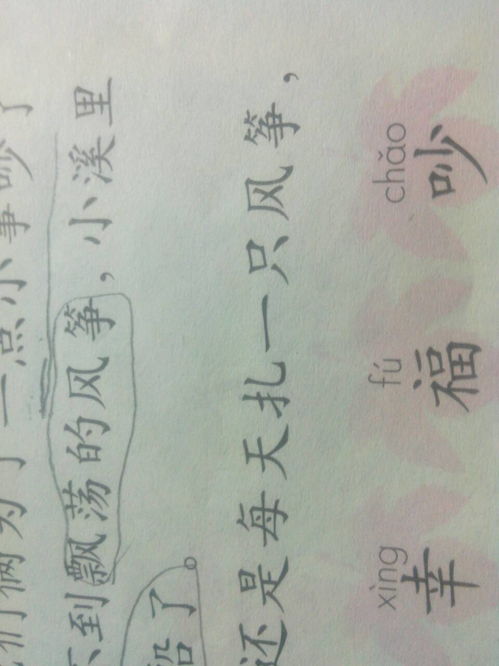 们俩为了一点小事吵了
不到飘荡的风筝，小溪里
船了。
还是每天扎一只风筝，
xìng fú chǎo
幸福吵